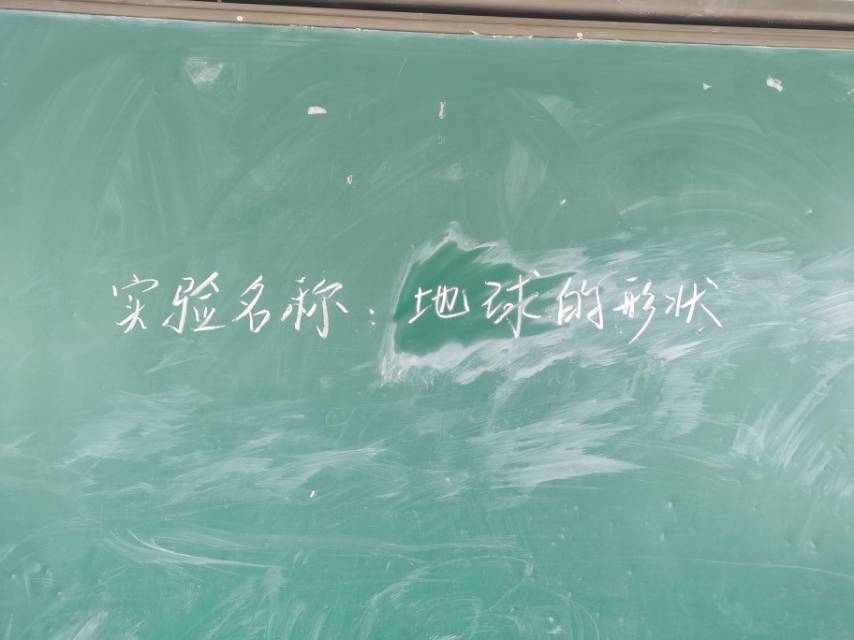 实验名称：地球的形状